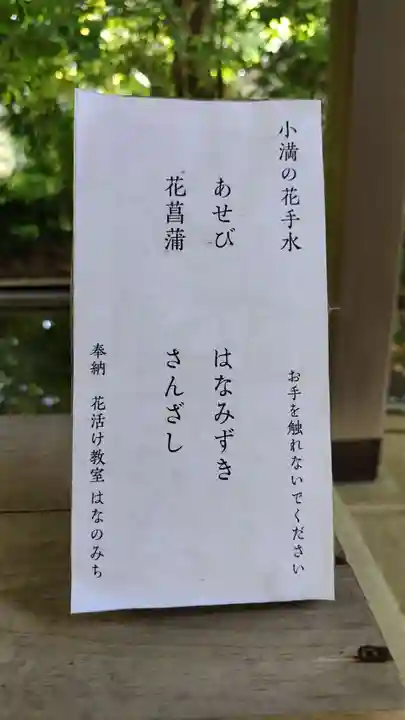 小満の花手水
お手を触れないでください
あせび　はなみずき
花菖蒲　さんざし
奉納　花活け教室 はなのみち